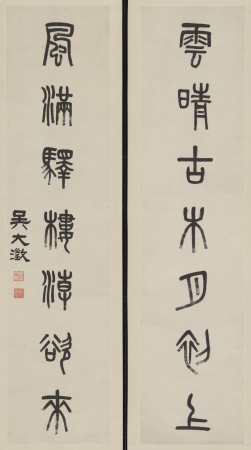 雲晴古木月初上
風滿驛樓潮欲來
吳大澂